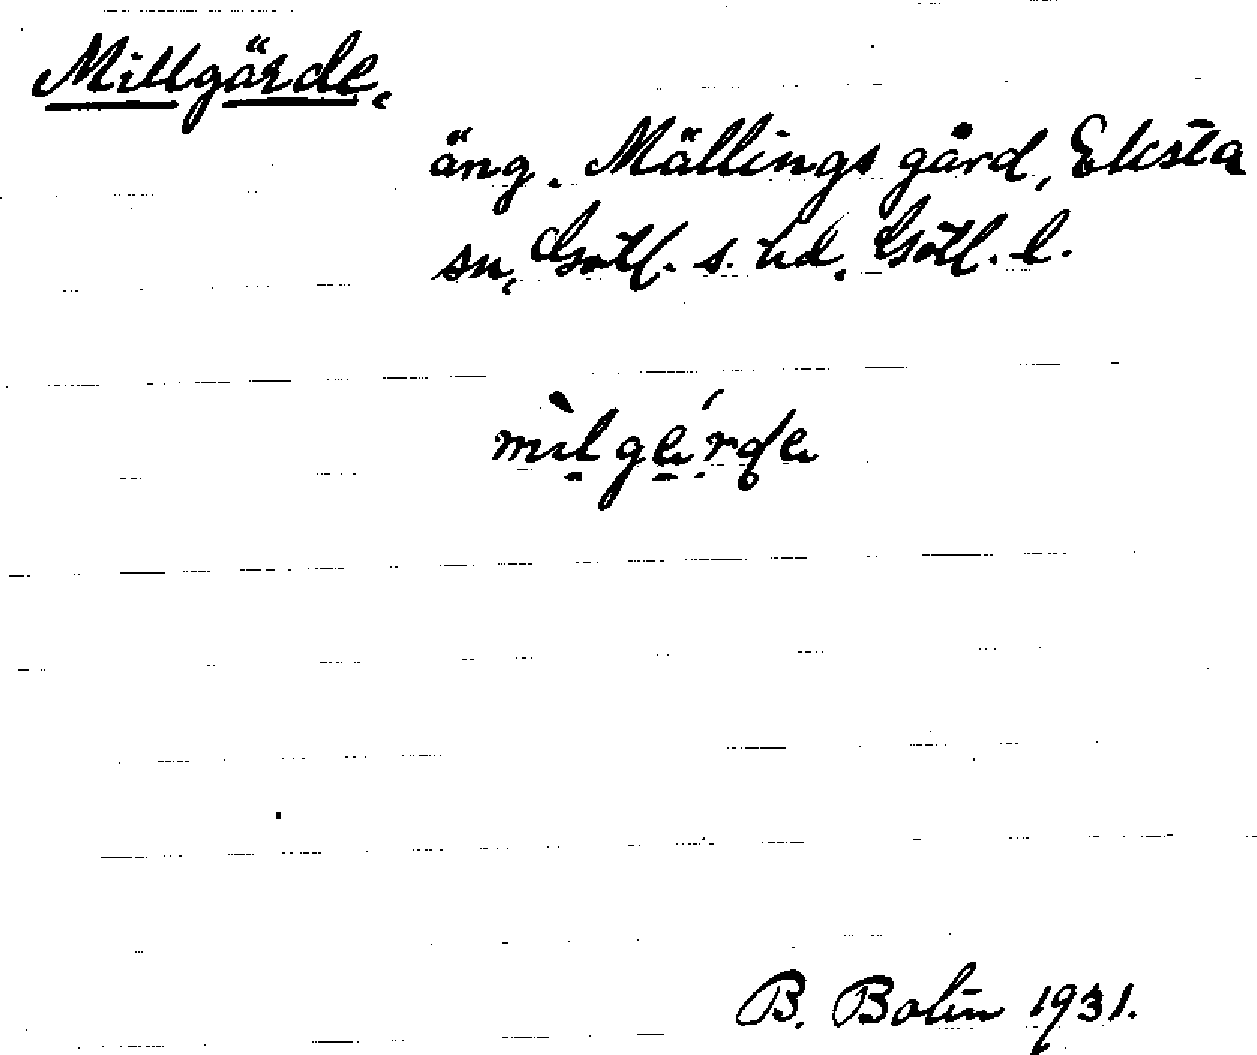 Millgärde,
äng. Mällings gård, Eksta
sn, Gotl. s. hd. Gotl. l.
mìlgérde
B. Bolin 1931.